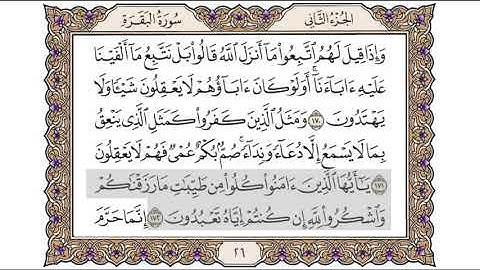 الجزء الثاني
سورة البقرة
وَإِذَا قِيلَ لَهُمُ ٱتَّبِعُوا۟ مَآ أَنزَلَ ٱللَّهُ قَالُوا۟ بَلْ نَتَّبِعُ مَآ أَلْفَيْنَا
عَلَيْهِ ءَابَآءَنَآ أَوَلَوْ كَانَ ءَابَآؤُهُمْ لَا يَعْقِلُونَ شَيْـًٔا وَلَا
يَهْتَدُونَ ١٧٠ وَمَثَلُ ٱلَّذِينَ كَفَرُوا۟ كَمَثَلِ ٱلَّذِى يَنْعِقُ
بِمَا لَا يَسْمَعُ إِلَّا دُعَآءً وَنِدَآءً صُمٌّۢ بُكْمٌ عُمْىٌ فَهُمْ لَا يَعْقِلُونَ
١٧١ يَـٰٓأَيُّهَا ٱلَّذِينَ ءَامَنُوا۟ كُلُوا۟ مِن طَيِّبَـٰتِ مَا رَزَقْنَـٰكُمْ
وَٱشْكُرُوا۟ لِلَّهِ إِن كُنتُمْ إِيَّاهُ تَعْبُدُونَ ١٧٢ إِنَّمَا حَرَّمَ
٢٦